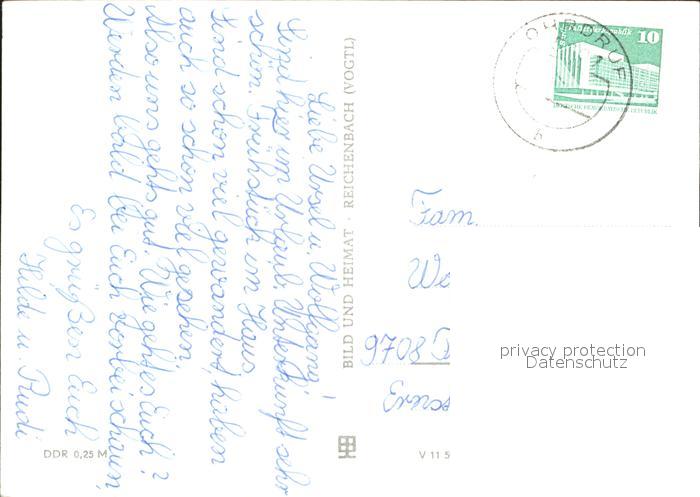 Liebe Ursel u. Wolfgang!
Sind hier im Urlaub. Unterkunft sehr
schön. Frühstück im Haus
Sind schon viel gewandert, haben
auch so schon viel gesehen.
Also uns gehts gut. Wie geht es Euch?
Werden bald bei Euch vorbei schauen,
Es grüßen Euch
Hilde u. Rudi
BILD UND HEIMAT · REICHENBACH (VOGTL)
DDR 0,25 M
V 11 5
OHRDRUF
10
Fam.
We
9708
privacy protection
Datenschutz